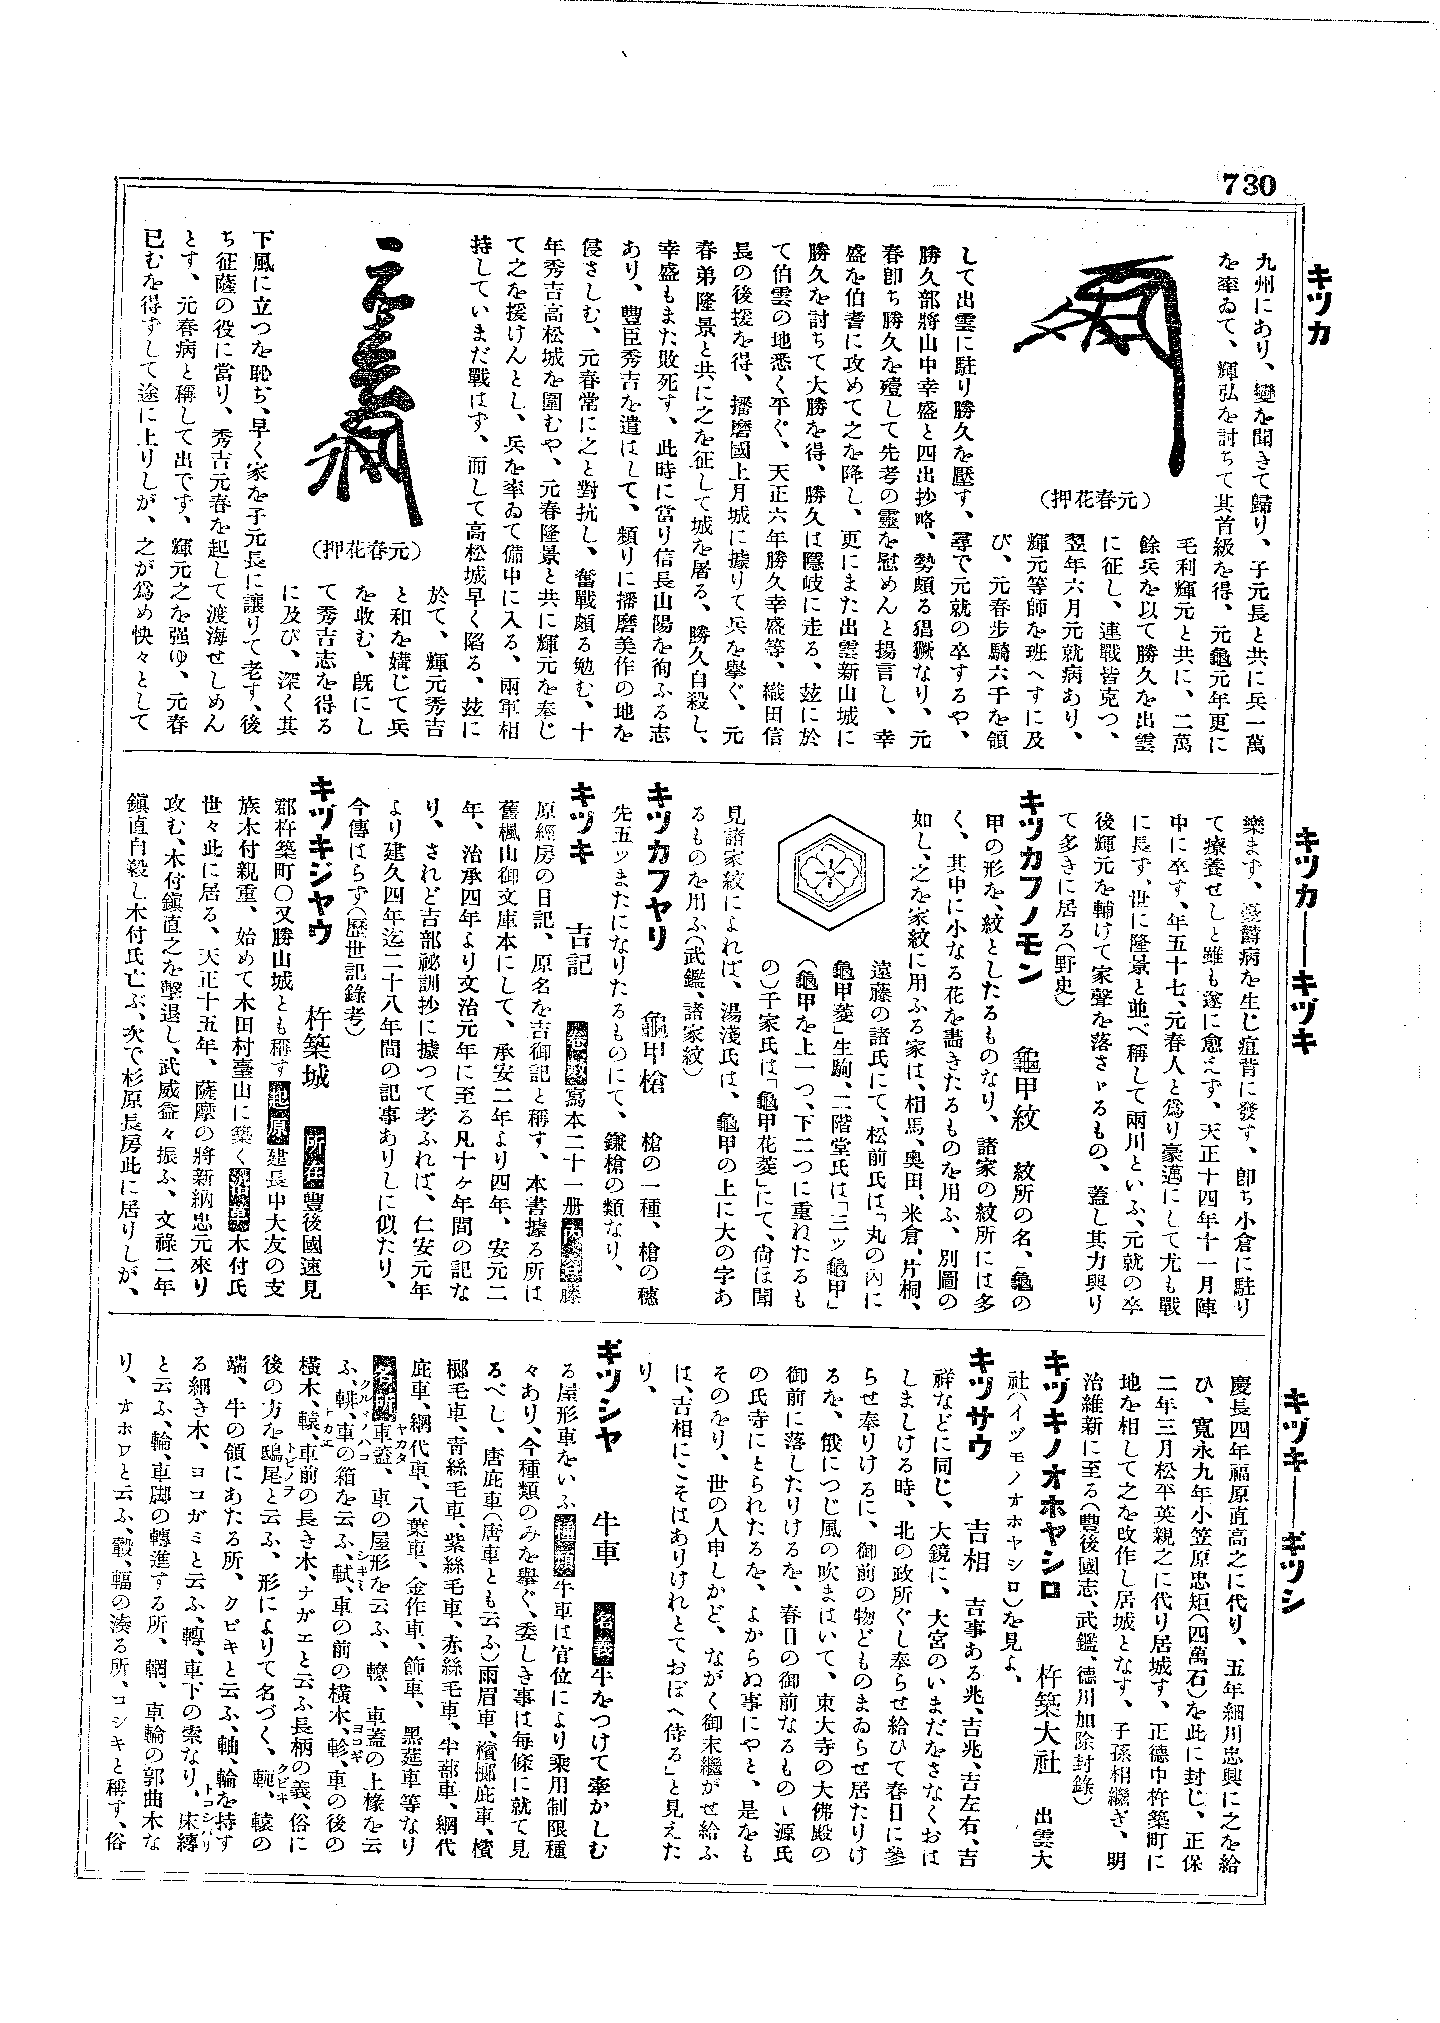 730
キツカ
キツカ――キヅキ
キヅキ――ギツシ
九州にあり、變を聞きて歸り、子元長と共に兵一萬
を率ゐて、輝弘を討ちて其首級を得、元龜元年更に
毛利輝元と共に、二萬
餘兵を以て勝久を出雲
に征し、連戰皆克つ、
翌年六月元就病あり、
輝元等師を班へすに及
び、元春步騎六千を領
(元春花押)
して出雲に駐り勝久を壓す、尋で元就の卒するや、
勝久部將山中幸盛と四出抄略、勢頗る猖獗なり、元
春卽ち勝久を殪して先考の靈を慰めんと揚言し、幸
盛を伯耆に攻めて之を降し、更にまた出雲新山城に
勝久を討ちて大勝を得、勝久は隱岐に走る、玆に於
て伯雲の地悉く平ぐ、天正六年勝久幸盛等、織田信
長の後援を得、播磨國上月城に據りて兵を擧ぐ、元
春弟隆景と共に之を征して城を屠る、勝久自殺し、
幸盛もまた敗死す、此時に當り信長山陽を徇ふる志
あり、豐臣秀吉を遣はして、頻りに播磨美作の地を
侵さしむ、元春常に之と對抗し、奮戰頗る勉む、十
年秀吉高松城を圍むや、元春隆景と共に輝元を奉じ
て之を援けんとし、兵を率ゐて備中に入る、兩軍相
持していまだ戰はず、而して高松城早く陷る、玆に
於て、輝元秀吉
と和を媾じて兵
を收む、旣にし
て秀吉志を得る
に及び、深く其
(元春花押)
下風に立つを恥ぢ、早く家を子元長に讓りて老す、後
ち征薩の役に當り、秀吉元春を起して渡海せしめん
とす、元春病と稱して出でず、輝元之を强ゆ、元春
已むを得ずして途に上りしが、之が爲め怏々として
樂まず、臺爵病を生じ疽背に發す、卽ち小倉に駐り
て療養せしと雖も遂に愈えず、天正十四年十一月陣
中に卒す、年五十七、元春人と爲り豪邁にして尤も戰
に長ず、世に隆景と並べ稱して兩川といふ、元就の卒
後輝元を輔けて家聲を落さゞるもの、蓋し其力興り
て多きに居る(野史)
キツカフノモン 龜甲紋 紋所の名、龜の
甲の形を、紋としたるものなり、諸家の紋所には多
く、其中に小なる花を畵きたるものを用ふ、別圖の
如し、之を家紋に用ふる家は、相馬、奧田、米倉、片桐、
遠藤の諸氏にて、松前氏は「丸の內に
龜甲菱」生駒、二階堂氏は「三ッ龜甲」
(龜甲を上一つ、下二つに重ねたるも
の)子家氏は「龜甲花菱」にて、尙ほ聞
見諸家紋によれば、湯淺氏は、龜甲の上に大の字あ
るものを用ふ(武鑑、諸家紋)
キツカフヤリ 龜甲槍 槍の一種、槍の穗
先五ッまたになりたるものにて、鎌槍の類なり、
キツキ 吉記 卷數寫本二十一册內容藤
原經房の日記、原名を吉御記と稱す、本書據る所は
舊楓山御文庫本にして、承安二年より四年、安元二
年、治承四年より文治元年に至る凡十ヶ年間の記な
り、されど吉部祕訓抄に據つて考ふれば、仁安元年
より建久四年迄二十八年間の記事ありしに似たり、
今傳はらず(歷世記錄考)
キヅキジヤウ 杵築城 所在豐後國速見
郡杵築町〇又勝山城とも稱す起原建長中大友の支
族木付親重、始めて木田村臺山に築く沿革木付氏
世々此に居る、天正十五年、薩摩の將新納忠元來り
攻む、木付鎭直之を擊退し、武威益々振ふ、文祿二年
鎭直自殺し木付氏亡ぶ、次で杉原長房此に居りしが、
慶長四年福原直高之に代り、五年細川忠興に之を給
ひ、寬永九年小笠原忠矩(四萬石)を此に封じ、正保
二年三月松平英親之に代り居城す、正德中杵築町に
地を相して之を改作し居城となす、子孫相繼ぎ、明
治維新に至る(豐後國志、武鑑、德川加除封錄)
キヅキノオホヤシロ 杵築大社 出雲大
社(イヅモノオホヤシロ)を見よ、
キツサウ 吉相 吉事ある兆、吉兆、吉左右、吉
祥などに同じ、大鏡に、大宮のいまだをさなくおは
しましける時、北の政所ぐし奉らせ給ひて春日に參
らせ奉りけるに、御前の物どものまゐらせ居たりけ
るを、俄につじ風の吹まはいて、東大寺の大佛殿の
御前に落したりけるを、春日の御前なるものゝ源氏
の氏寺にとられたるを、よからぬ事にやと、是をも
そのをり、世の人申しかど、ながく御末繼がせ給ふ
は、吉相にこそはありけれとておぼへ侍る」と見えた
り、
ギツシヤ 牛車 名義牛をつけて牽かしむ
る屋形車をいふ種類牛車は官位により乘用制限種
々あり、今種類のみを擧ぐ、委しき事は每條に就て見
るべし、唐庇車(唐車とも云ふ)雨眉車、檳榔庇車、檳
榔毛車、靑絲毛車、紫絲毛車、赤絲毛車、半蔀車、網代
庇車、網代車、八葉車、金作車、飾車、黑莚車等なり
名所車蓋、車の屋形を云ふ、轑、車蓋の上椽を云
ふ、䡟、車の箱を云ふ、軾、車の前の橫木、軫、車の後の
橫木、轅、車前の長き木、ナガエと云ふ長柄の義、俗に
後の方を鴟尾と云ふ、形によりて名づく、軛、轅の
端、牛の領にあたる所、クビキと云ふ、軸、輪を持す
る細き木、ヨコガミと云ふ、轉、車下の索なり、床縛
と云ふ、輪、車脚の轉進する所、輞、車輪の郭曲木な
り、オホワと云ふ、轂、輻の湊る所、コシキと稱す、俗